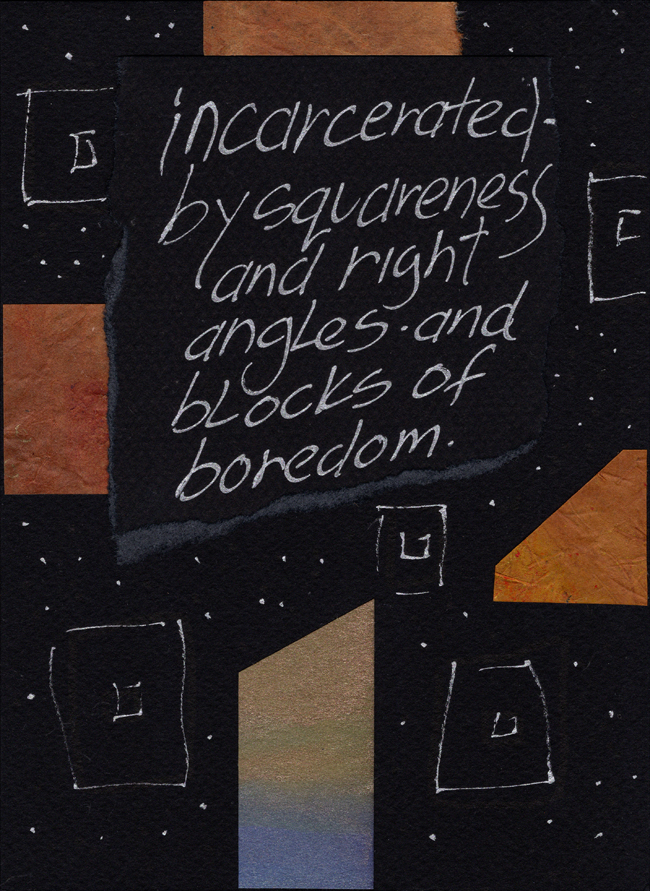 incarcerated.
by squareness
and right
angles.and
blocks of
boredom.